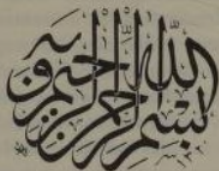 بسم الله الرحمن الرحيم وبه